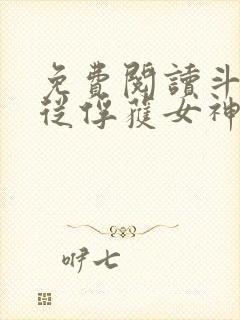 免費閱讀斗
從俘獲女神
咿七